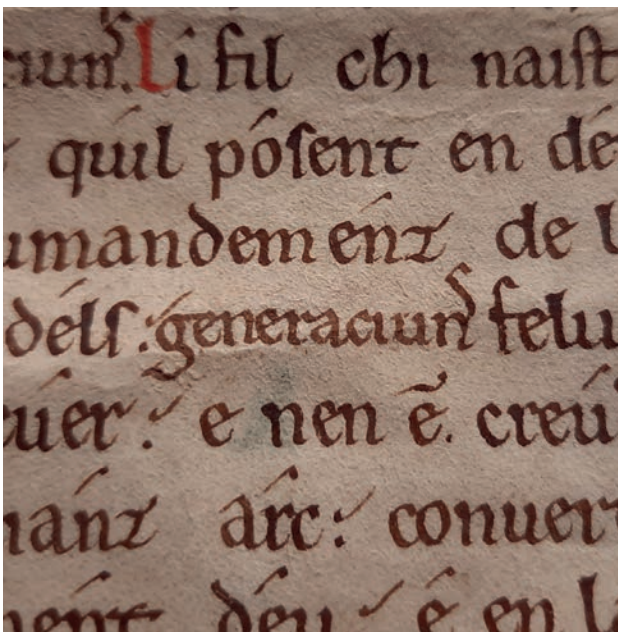 ciuns. Li fil chi naist
quil pósent en dé
umandemenz de l
déls. generaciuns felu
cuer. e nen ē. creú
nanz árc: conuer
ment déu é en la